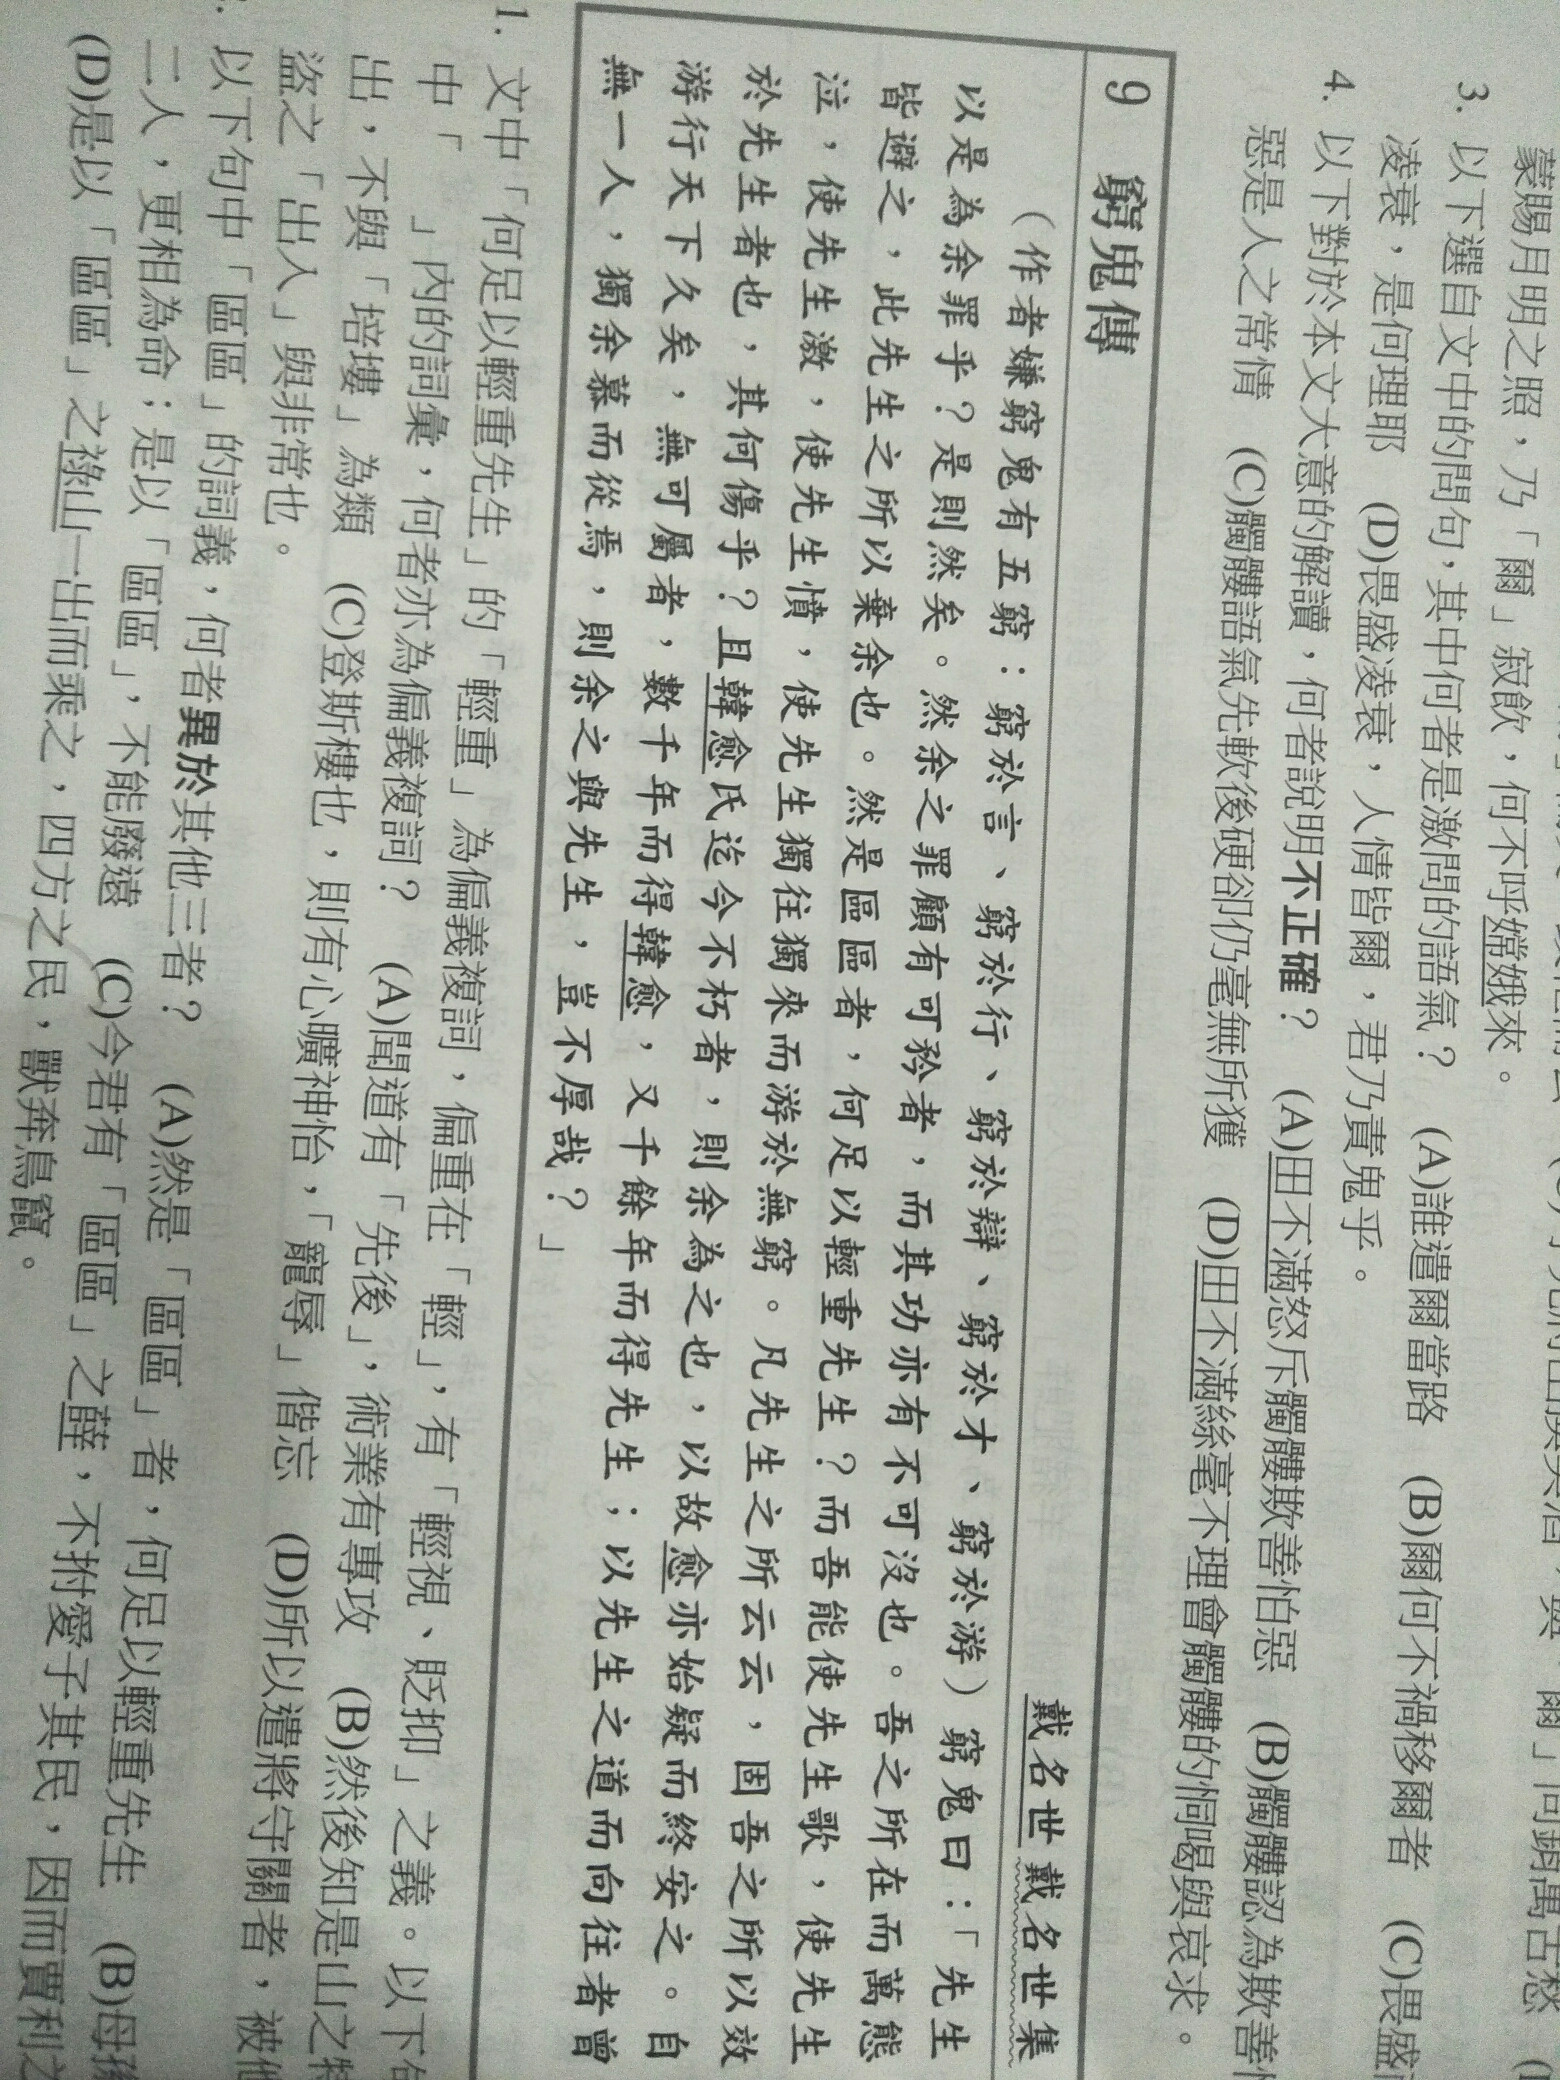 蒙賜月明之照，乃「爾」寂飲，何不呼嫦娥來。
3. 以下選自文中的問句，其中何者是激問的語氣？ (A)誰遣爾當路 (B)爾何不禍移爾者 (C)畏盛
凌衰，是何理耶 (D)畏盛凌衰，人情皆爾，君乃責鬼乎。
4. 以下對於本文大意的解讀，何者說明不正確？ (A)田不滿怒斥髑髏欺善怕惡 (B)髑髏認為欺善
惡是人之常情 (C)髑髏語氣先軟後硬卻仍毫無所獲 (D)田不滿絲毫不理會髑髏的恫喝與哀求。
9 窮鬼傳
戴名世 戴名世集
（作者嫌窮鬼有五窮：窮於言、窮於行、窮於辯、窮於才、窮於游）窮鬼曰：「先生
以是為余罪乎？是則然矣。然余之罪顧有可矜者，而其功亦有不可沒也。吾之所在而萬態
皆避之，此先生之所以棄余也。然是區區者，何足以輕重先生？而吾能使先生歌，使先生
泣，使先生激，使先生憤，使先生獨往獨來而游於無窮。凡先生之所云云，固吾之所以效
於先生者也，其何傷乎？且韓愈氏迄今不朽者，則余為之也，以故愈亦始疑而終安之。自
游行天下久矣，無可屬者，數千年而得韓愈，又千餘年而得先生；以先生之道而向往者曾
無一人，獨余慕而從焉，則余之與先生，豈不厚哉？」
1. 文中「何足以輕重先生」的「輕重」為偏義複詞，偏重在「輕」，有「輕視、貶抑」之義。以下句
中「 」內的詞彙，何者亦為偏義複詞？ (A)聞道有「先後」，術業有專攻 (B)然後知是山之特
出，不與「培塿」為類 (C)登斯樓也，則有心曠神怡，「寵辱」偕忘 (D)所以遣將守關者，被他
盜之「出入」與非常也。
以下句中「區區」的詞義，何者異於其他三者？ (A)然是「區區」者，何足以輕重先生 (B)母孫
二人，更相為命；是以「區區」，不能廢遠 (C)今君有「區區」之薛，不拊愛子其民，因而賈利之
(D)是以「區區」之祿山一出而乘之，四方之民，獸奔鳥竄。